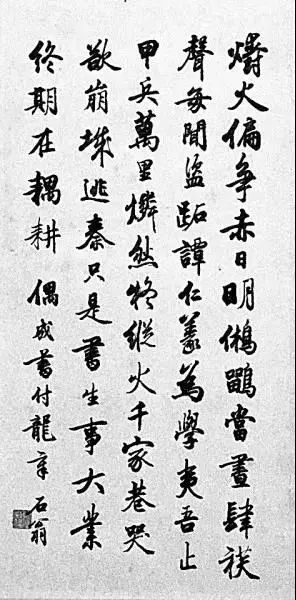 爝火偏爭赤日明鵂鶹當晝肆祅
聲每聞盜跖譚仁義為學夷吾止
甲兵萬里燐然將縱火千家巷哭
欲崩城逃秦只是書生事大業
終期在耦耕 偶成書付龍章石翁